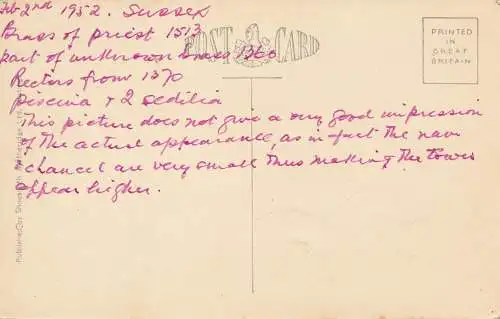 Feb 2nd 1952. Sussex
Brass of priest 1513
part of unknown brass 1360
Rectors from 1370
piscina + 2 sedilia
This picture does not give a very good impression
of the actual appearance, as in fact the nave
chancel are very small thus making the tower
appear higher.
POST CARD
PRINTED
IN
GREAT
BRITAIN